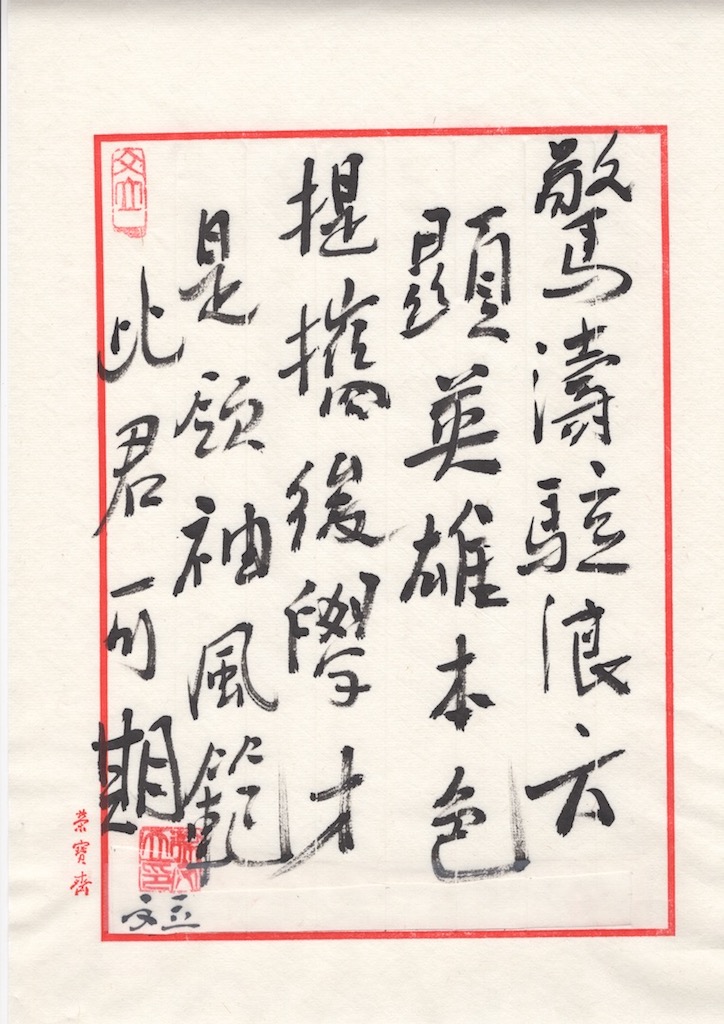 驚濤駭浪方
顯英雄本色
提攜後學才
是領袖風範
此君可期
文立
文立
榮寶齋